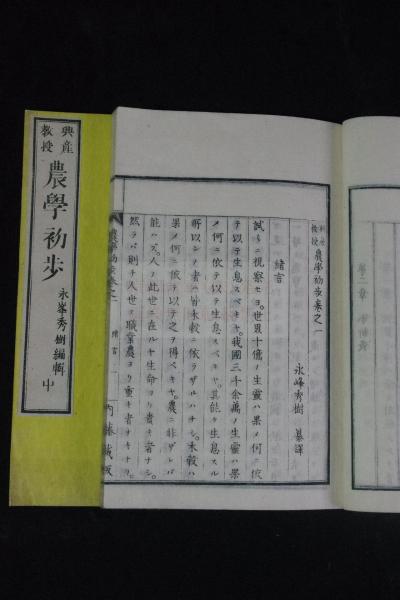 興産
教授
農學初歩
永峯秀樹編輯
中
教授 農學初歩卷之一
永峰秀樹 纂譯
緒言
試ミニ視察セヨ。世界十億ノ生靈ハ果メ何ニ依
テ以テ生息スベキヤ。我國三千余萬ノ生靈ハ果
メ何ニ依テ以テ生息スベキヤ。其能ク生息スル
所以ノ者ハ皆米穀ニ依ラザルハナシ。米穀ハ
果メ何ニ依テ以テ之ヲ得ベキヤ。農ニ非ザレバ
能ハズ。人ノ此世ニ在ルヤ生命ヨリ貴キ者ナシ。
然ラバ則チ人世ノ職業農ヨリ重キ者ナキナリ。
農學初歩卷之一
緒言
一
内藤藏板